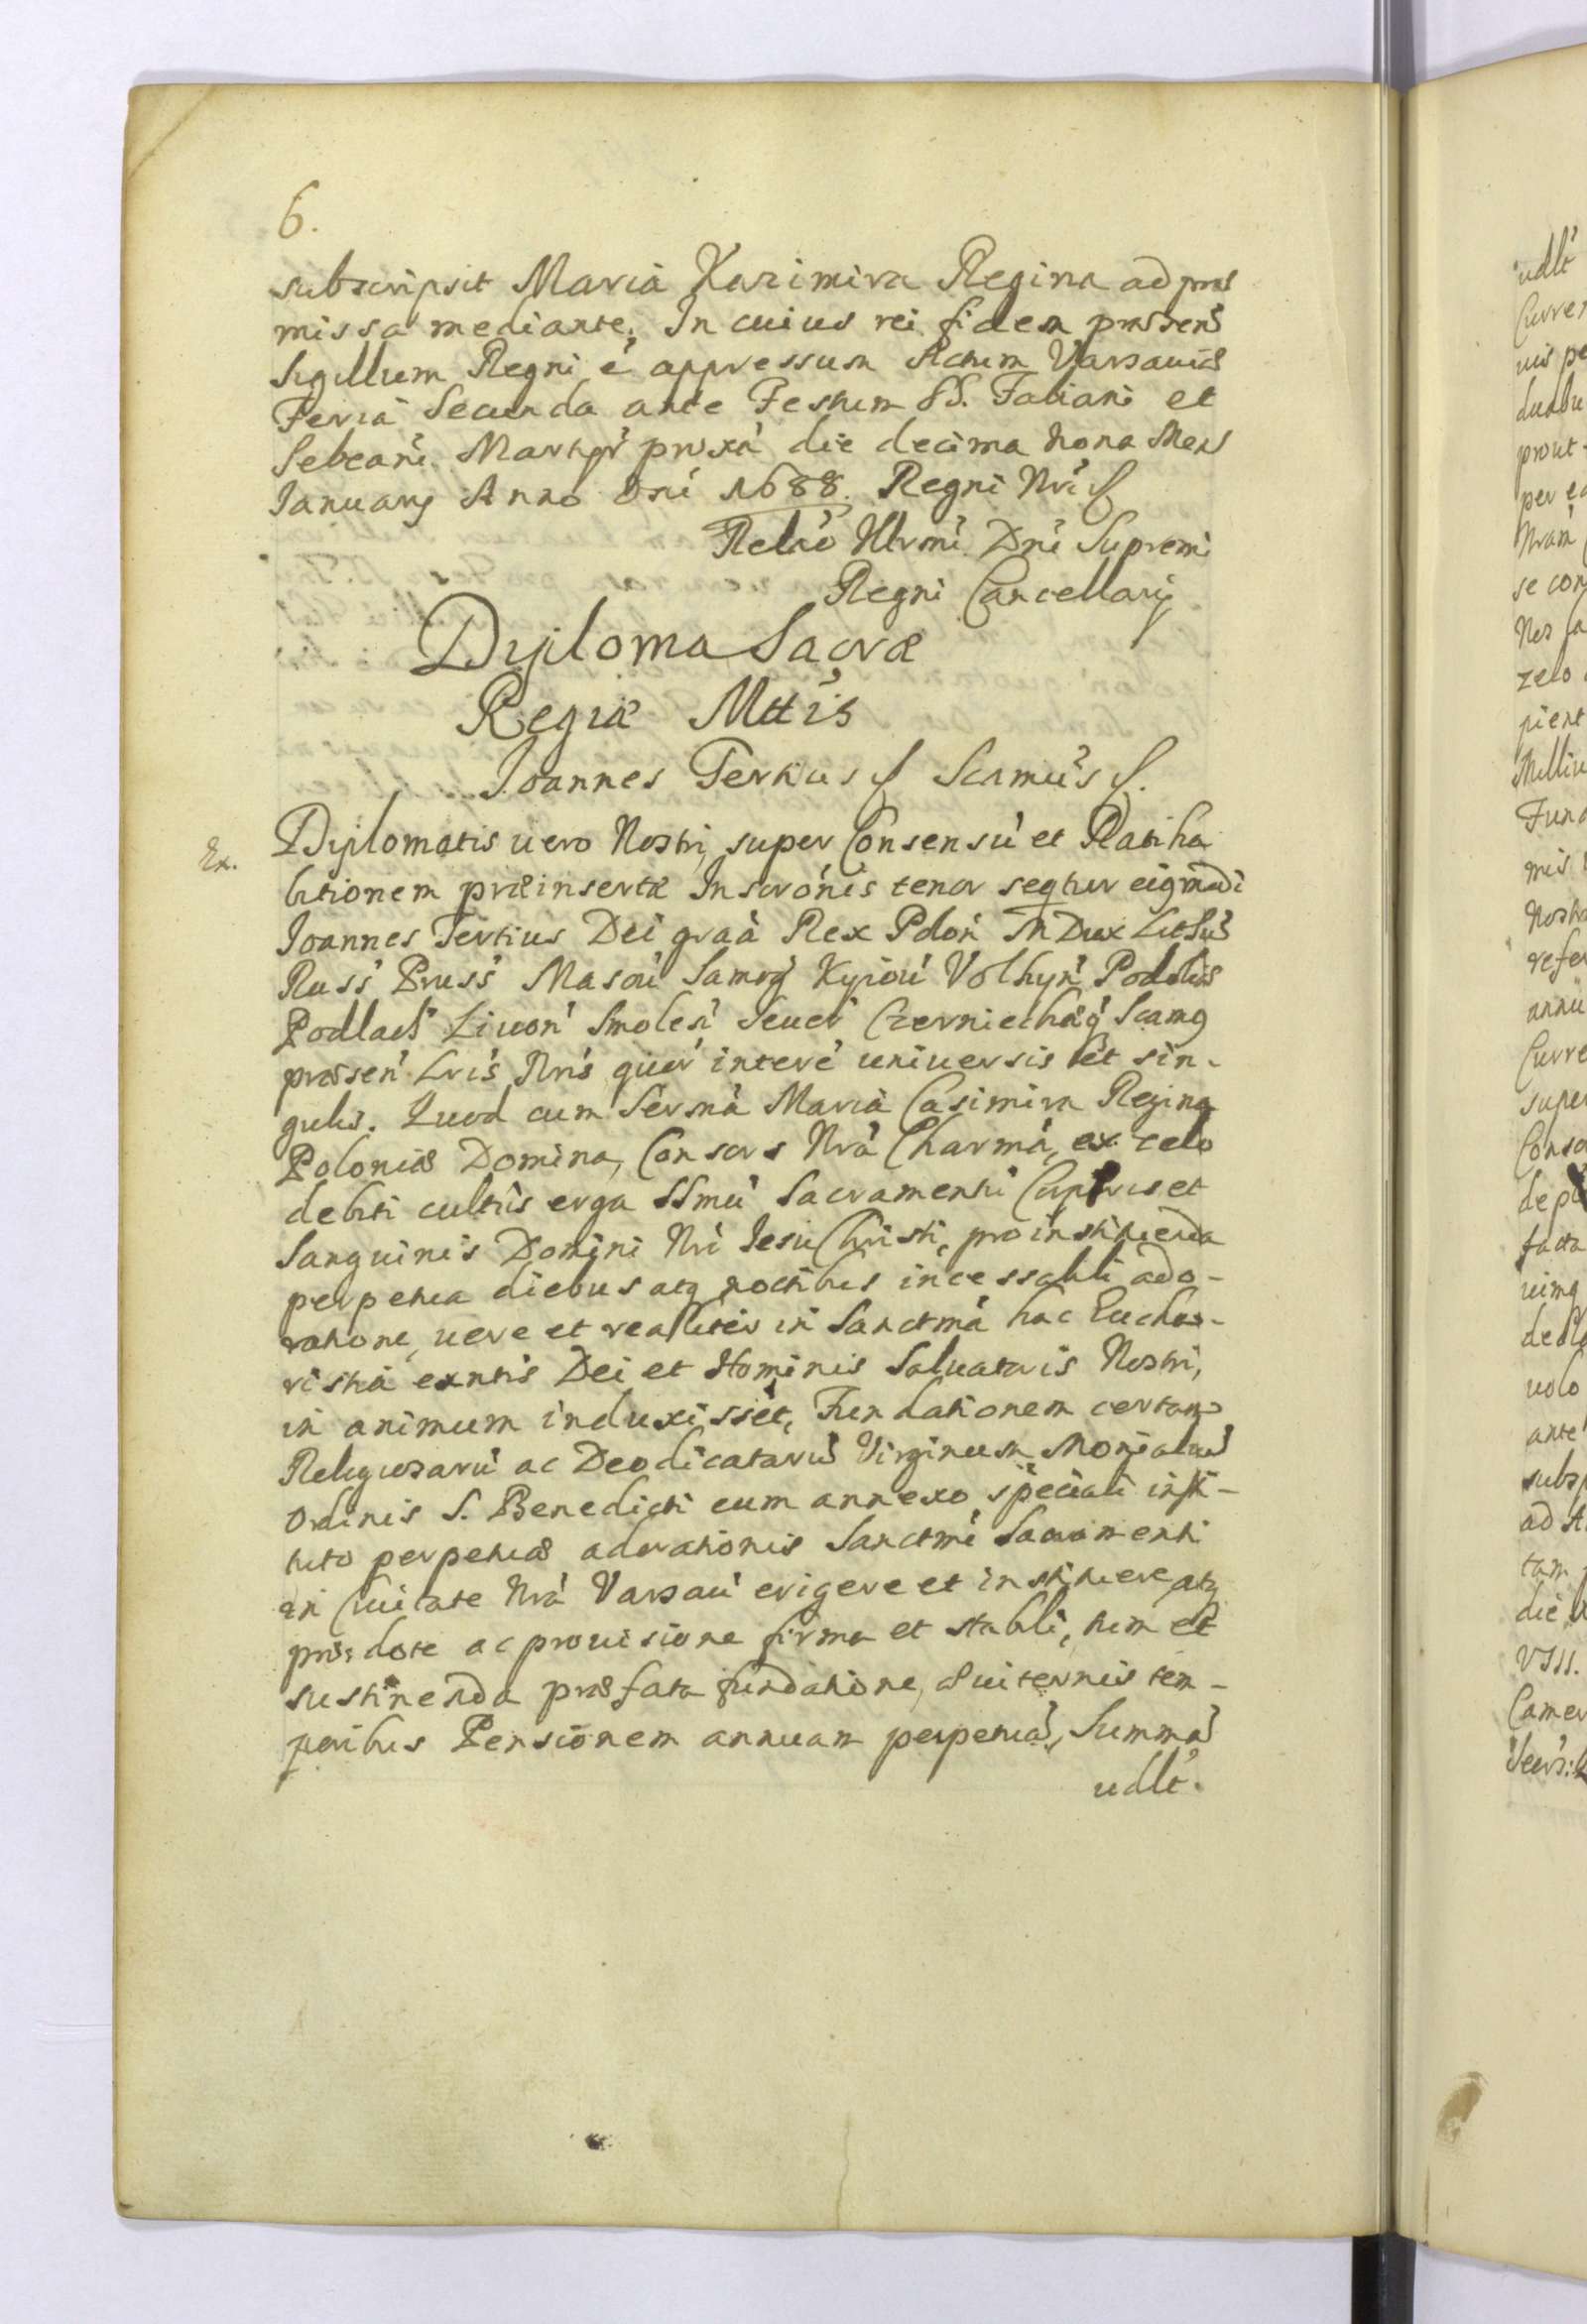 6.
subscripsit Maria Kazimira Regina ad præ
missa mediante. In cuius rei fidem præsens
Sigillum Regni ẻ appressum Actum Varsauiæ
Feria Secunda ante Festum SS. Fabiani et
Sebeani Martyr̉ proxa̓ die decima nona Mens
Ianuarij Anno Dni̓ 1688. Regni Nri̓ &
Relao̓ Illrmi̓ Dni̓ Supremi
Regni Cancellarij
Diploma Sacræ
Regiæ Mttis̓
Joannes Tertius & Scamus̓ &.
Ex. Diplomatis uero Nostri, super Consensu̓ et Ratiha
bitionem præinsertæ Inscronis̓ tenor seqtur eigmodi̓
Joannes Tertius Dei graa̓ Rex Polon̓ M Dux Lithuæ
Russ̓ Pruss̓ Masou̓ Samog̓ Kyiou̓ Volhyn̓ Podoliæ
Podlach̓ Liuon̓ Smolen̓ Seuer̓ Czerniechaq̓ Scamq
præsen̓ Lris̓ Nris̓ quor̓ intere̓ uniuersis et sin-
gulis. Quod cum Serma̓ Maria Casimira Regina
Poloniæ Domina, Consors Nra̓ Charma̓, ex zelo
debiti cultus̓ erga SSmu̓ Sacramenti Corporis et
Sanguinis Domini Nri̓ Iesu Christi, pro instituenda
perpetua diebus atq noctibus incessabili ado-
ratione, uere et realiter in Sanctma̓ hac Eucha-
ristia exntis̓ Dei et Hominis Saluatoris Nostri,
in animum induxisset, Fundationem certam
Religiosaru̓ ac Deodicataru̓ Virginum Monialiu̓
Ordinis S. Benedicti cum annexo speciali insti-
tuto perpetuæ adorationis Sanctmi̓ Sacramenti
in Ciuitate Nra̓ Varsau̓ erigere et instituere atq
pro dote ac prouisione firma et stabili, tum et
sustinenda præfata fundatione, æuiternis tem-
poribus Pensionem annuam perpetua̓, Summa̓
udlt̓.
udlt̓